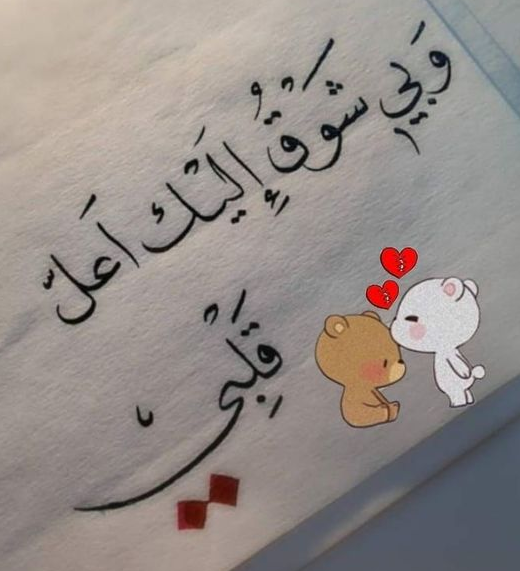 وَبِي شَوْقٌ إِلَيْكَ اَعَلَّ
قَلْبِي